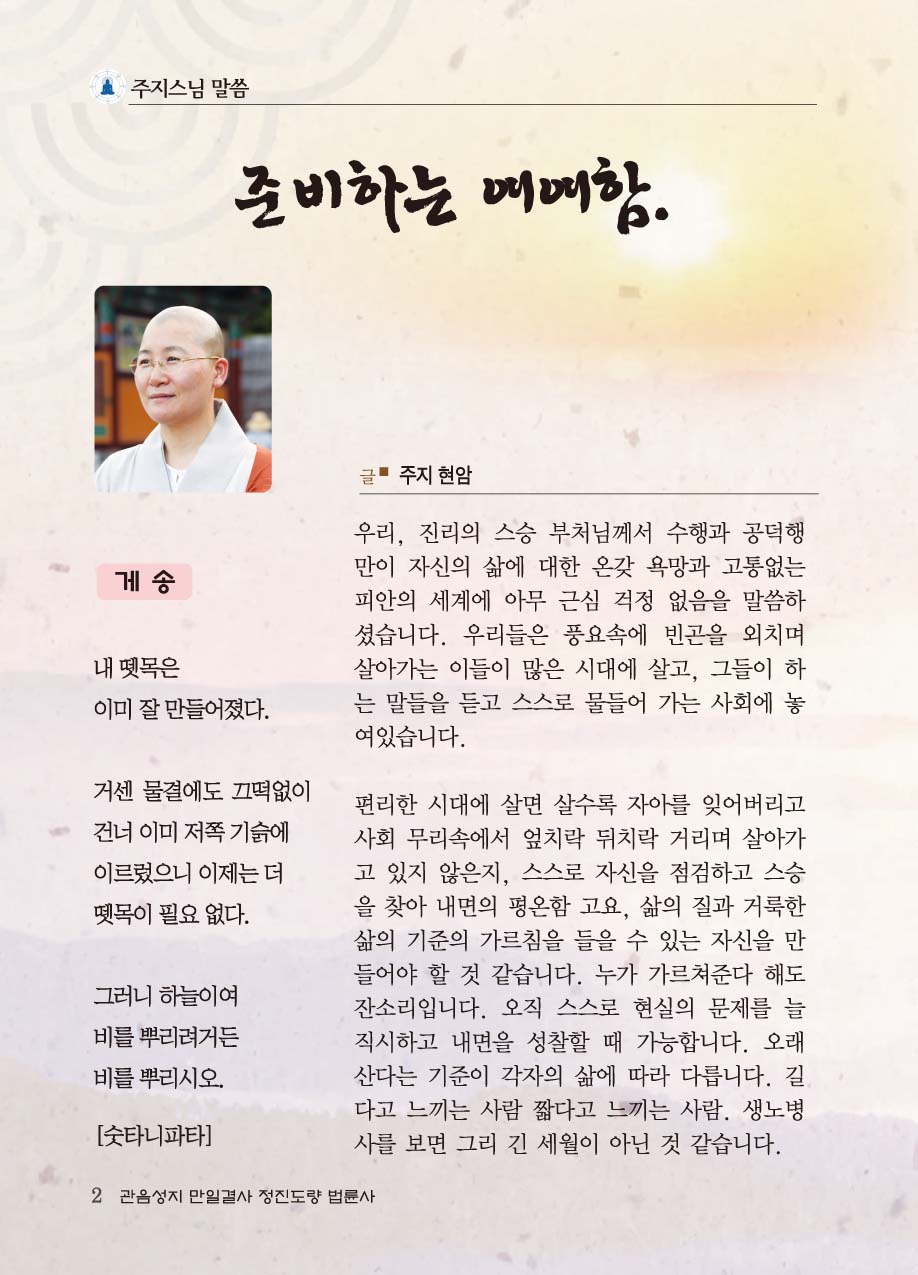 주지스님 말씀
준비하는 여여함.
글■ 주지 현암
게 송
내 뗏목은
이미 잘 만들어졌다.
거센 물결에도 끄떡없이
건너 이미 저쪽 기슭에
이르렀으니 이제는 더
뗏목이 필요 없다.
그러니 하늘이여
비를 뿌리려거든
비를 뿌리시오.
[숫타니파타]
우리, 진리의 스승 부처님께서 수행과 공덕행
만이 자신의 삶에 대한 온갖 욕망과 고통없는
피안의 세계에 아무 근심 걱정 없음을 말씀하
셨습니다. 우리들은 풍요속에 빈곤을 외치며
살아가는 이들이 많은 시대에 살고, 그들이 하
는 말들을 듣고 스스로 물들어 가는 사회에 놓
여있습니다.
편리한 시대에 살면 살수록 자아를 잊어버리고
사회 무리속에서 엎치락 뒤치락 거리며 살아가
고 있지 않은지, 스스로 자신을 점검하고 스승
을 찾아 내면의 평온함 고요, 삶의 질과 거룩한
삶의 기준의 가르침을 들을 수 있는 자신을 만
들어야 할 것 같습니다. 누가 가르쳐준다 해도
잔소리입니다. 오직 스스로 현실의 문제를 늘
직시하고 내면을 성찰할 때 가능합니다. 오래
산다는 기준이 각자의 삶에 따라 다릅니다. 길
다고 느끼는 사람 짧다고 느끼는 사람. 생노병
사를 보면 그리 긴 세월이 아닌 것 같습니다.
2 관음성지 만일결사 정진도량 법륜사